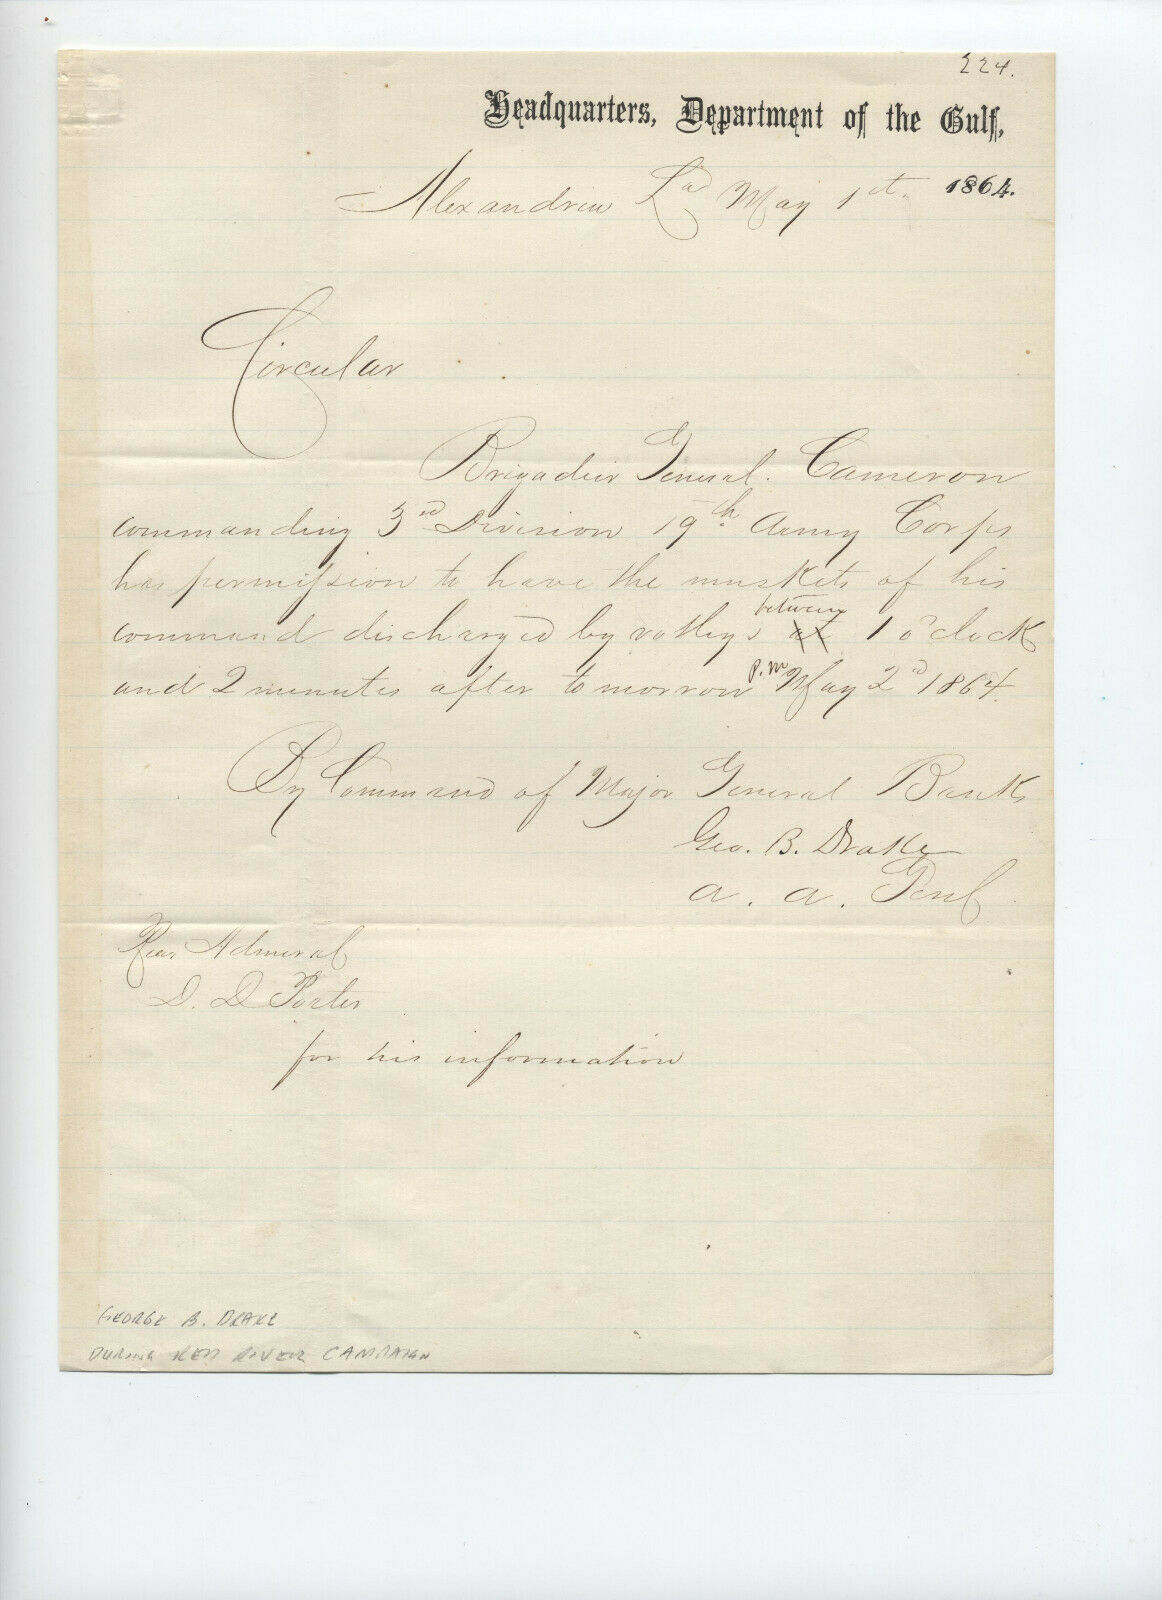 224.
Headquarters, Department of the Gulf,
Alexandria La May 1st. 1864.
Circular
Brigadeir General. Cameron
commanding 3rd Division 19th Army Corps
has permission to have the muskets of his
between
command discharged by volleys at 1 o'clock
and 2 minutes after tomorrow P.M May 2nd 1864.
By Command of Major General Banks
Geo. B. Drake
A. A. Genl
Rear Admiral
D. D Porter
for his information
GEORGE B. DRAKE
DURING RED RIVER CAMPAIGN